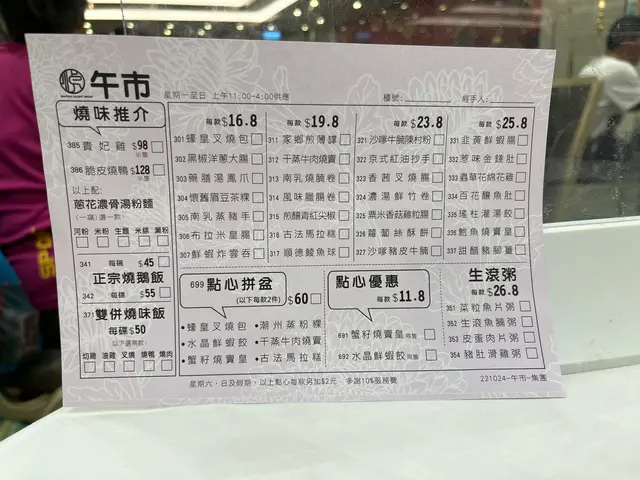 午市
星期一至日 上午11:00-4:00供應
檯號:
經手人:
燒味推介
385 貴妃雞 $98 半隻
386 脆皮燒鴨 $128 半隻
以上配:
蔥花濃骨湯粉麵
(一窩)選一款:
河粉 米粉 生麵 米線 瀨粉
341 每碗 $45
正宗燒鵝飯
342 每碟 $55
371 雙併燒味飯
每碟$50
以下選兩款:
切雞 油雞 叉燒 燒鴨 燒肉
每款$16.8
301 蠔皇叉燒包
302 黑椒洋蔥大腸
303 藥膳湯鳳爪
304 懷舊眉豆茶粿
305 南乳蒸豬手
306 布拉米皇腸
307 鮮蝦炸雲吞
每款$19.8
311 家鄉煎薄罉
312 干蒸牛肉燒賣
313 南乳燒腩卷
314 風味臘腸卷
315 煎釀青紅尖椒
316 古法馬拉糕
317 順德鯪魚球
每款$23.8
321 沙嗲牛腩陳村粉
322 京式紅油抄手
323 香茜叉燒腸
324 濃湯鮮竹卷
325 粟米香菇雞粒腸
326 蘿蔔絲酥餅
327 沙嗲豬皮牛腩
每款$25.8
331 韭黃鮮蝦腸
332 蔥味金錢肚
333 蟲草花綿花雞
334 百花釀魚肚
335 瑤柱灌湯餃
336 鮑魚燒賣皇
337 甜醋豬腳薑
699 點心拼盆
(以下每款2件) $60
•蠔皇叉燒包 •潮州蒸粉粿
•水晶鮮蝦餃 •干蒸牛肉燒賣
•蟹籽燒賣皇 •古法馬拉糕
點心優惠
每款$11.8
691 蟹籽燒賣皇 兩隻
692 水晶鮮蝦餃 兩隻
生滾粥
每款$26.8
351 菜粒魚片粥
352 生滾魚腩粥
353 皮蛋肉片粥
354 豬肚滑雞粥
星期六、日及假期，以上點心每款另加$2元 多謝10%服務費
221024-午市-集團